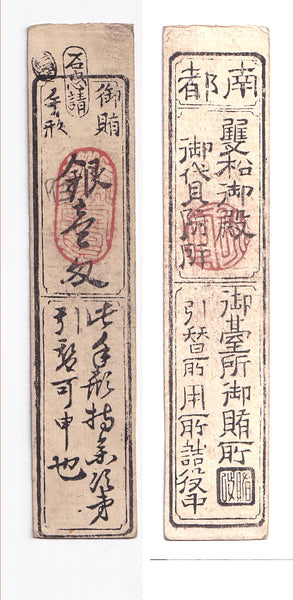 御賄
手形
銀壹匁
此手形持参次第
引替可申也
南都
雙松御殿
御代見隔所
御臺所御賄所
引替所用所詰役中